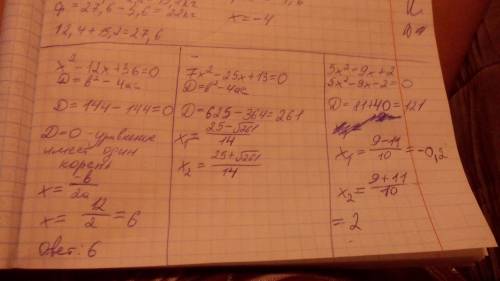 q = 27,6 - 5,6 = 22кг
x = -4
12,4 + 15,2 = 27,6
x² - 12x + 36 = 0
D = b² - 4ac
D = 144 - 144 = 0
D = 0 - уравнение
имеет один
корень
x = -b/2a
x = 12/2 = 6
Ответ: 6
7x² - 25x + 13 = 0
D = b² - 4ac
D = 625 - 364 = 261
x₁ = (25 - √261)/14
x₂ = (25 + √261)/14
5x² - 9x + 2
5x² - 9x - 2 = 0
D = 11 + 40 = 121
x₁ = (9 - 11)/10 = -0,2
x₂ = (9 + 11)/10
= 2